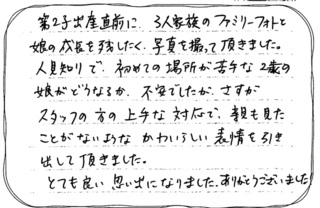 第2子出産直前に、3人家族のファミリーフォトと
娘の成長を残したく、写真を撮って頂きました。
人見知りで、初めての場所が苦手な2歳の
娘がどうなるか、不安でしたが、さすが
スタッフの方の上手な対応で、親も見た
ことがないような かわいらしい 表情を引き
出して頂きました。
とても良い思い出になりました。ありがとうございました!